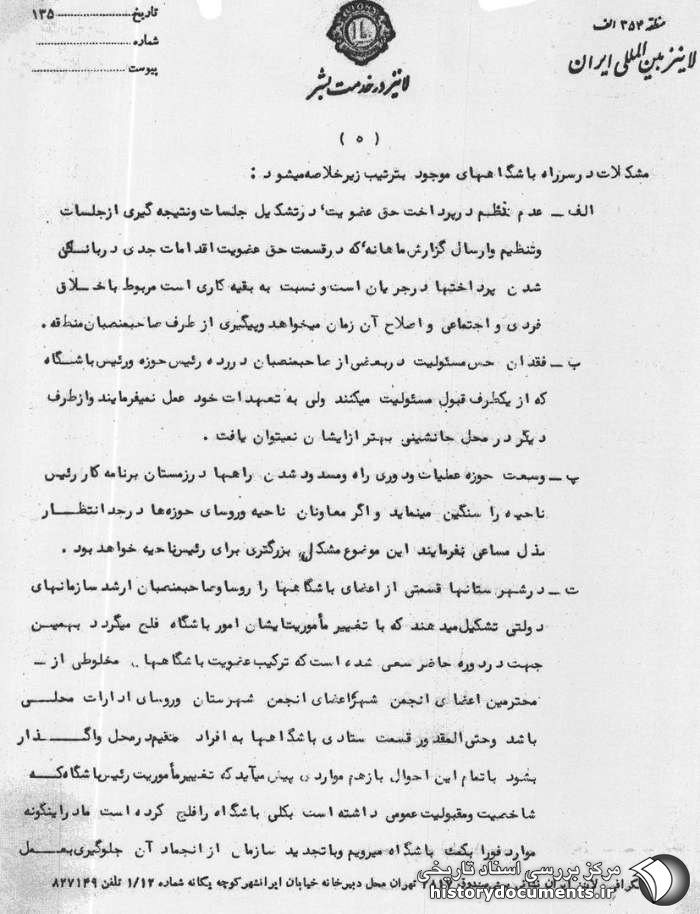 منطقه ۳۵۴ الف
لاینز بین المللی ایران
LIONS
لاینز در خدمت بشر
تاریخ ۱۳۵
شماره
پیوست
( ۵ )
مشکلات در سر راه باشگاههای موجود بترتیب زیر خلاصه میشود :
الف ـ عدم نظم در پرداخت حق عضویت، در تشکیل جلسات و نتیجه گیری از جلسات
و تنظیم و ارسال گزارش ماهانه، که در قسمت حق عضویت اقدامات جدی در بانکی
شدن پرداختها در جریان است و نسبت به بقیه کاری است مربوط باخلاق
فردی و اجتماعی و اصلاح آن زمان میخواهد و پیگیری از طرف صاحبمنصبان منطقه .
ب ـ فقدان حس مسئولیت در بعضی از صاحبمنصبان در رده رئیس حوزه و رئیس باشگاه
که از یکطرف قبول مسئولیت میکنند ولی به تعهدات خود عمل نمیفرمایند و از طرف
دیگر در محل جانشینی بهتر از ایشان نمیتوان یافت .
پ ـ وسعت حوزه عملیات و دوری راه و مسدود شدن راهها در زمستان برنامه کار رئیس
ناحیه را سنگین مینماید و اگر معاونان ناحیه و روسای حوزه‌ها در حد انتظار
بذل مساعی نفرمایند این موضوع مشکل بزرگتری برای رئیس ناحیه خواهد بود .
ت ـ در شهرستانها قسمتی از اعضای باشگاهها را روسا و صاحبمنصبان ارشد سازمانهای
دولتی تشکیل میدهند که با تغییر مأموریت ایشان امور باشگاه فلج میگردد بهمین
جهت در دوره حاضر سعی شده است که ترکیب عضویت باشگاهها مخلوطی از ـ
محترمین اعضای انجمن شهر، اعضای انجمن شهرستان و روسای ادارات محلی
باشد و حتی المقدور قسمت ستادی باشگاهها به افراد مقیم در محل واگذار
بشود با تمام این احوال باز هم مواردی پیش میآید که تغییر مأموریت رئیس باشگاه که
شاخصیت و مقبولیت عمومی داشته است بکلی باشگاه را فلج کرده است ما در اینگونه
موارد فورا بکمک باشگاه میرویم و با تجدید سازمان از انجماد آن جلوگیری بعمل
لاینز ایران تهران محل دبیرخانه خیابان ایرانشهر کوچه یگانه شماره ۱/۱۲ تلفن ۸۲۷۱۴۹
مرکز بررسی اسناد تاریخی
historydocuments.ir